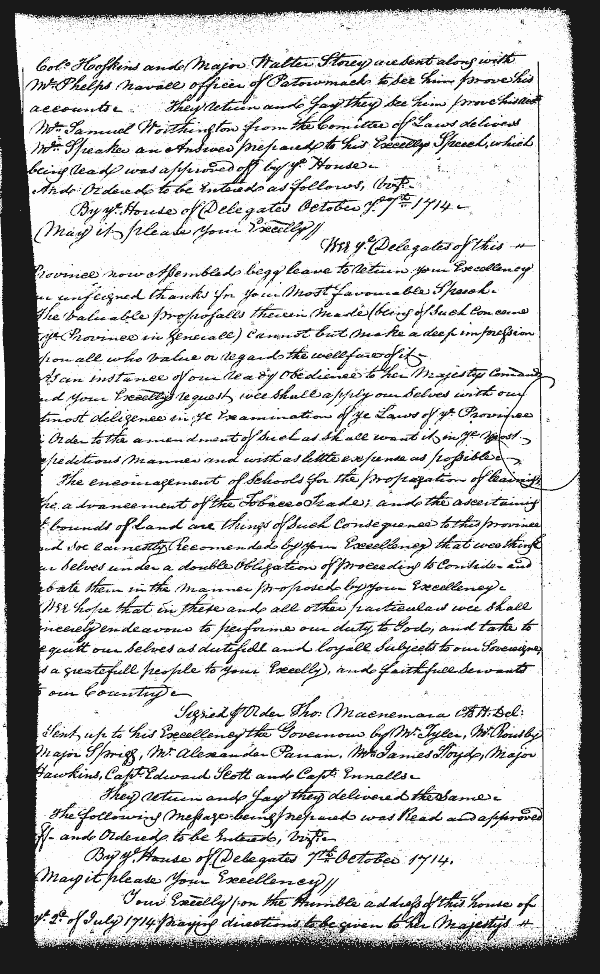 Col.o Hoskins and Major Walter Storey are sent along with
Mr. Phelps navall officer of Patowmack to See him prove his
accounts. They return and say they see him prove his acct
Mr. Samuel Worthington from the Comittee of Laws delivers
Mr. Speaker an Answer prepared to his Excellys Speech, which
being read was approved off by ye House.
And Ordered to be Entered as follows, vizt.
By ye House of Delegates October ye 7th 1714.
May it please Your Excelly //
Wee ye Delegates of this
Province now Assembled begg leave to return your Excellency
our unfeigned thanks for Your Most favourable Speech.
The valuable proposalls therein made (being of Such Concerne
ye Province in Generall) cannot but make a deep impression
upon all who value or regard the wellfare of it.
As an instance of our ready Obedience to her Majestys Comands
and Your Excellys request wee shall apply our Selves with our
utmost diligence in ye Examination of ye Laws of ye Province
in Order to the amendment of Such as shall want it in ye most
expeditious manner and with as little expense as possible.
The encouragement of Schools for the propagation of learning
the advancement of the Tobacco Trade; and the ascertaining
ye bounds of Land are things of Such Consequence to this province
and soe earnestly Recomended by your Excellency that wee think
our Selves under a double Obligation of proceeding to Consider and
debate them in the manner proposed by your Excellency.
Wee hope that in these and all other particulars wee shall
sincerely endeavour to performe our duty to God, and take to
acquitt our selves as dutifull and loyall Subjects to our Sovereigne,
as a greatefull people to your Excelly, and faithfull Servants
to our Country.
Signed p Order Tho: Macnemara Cl. H. Del:
Sent up to his Excellency the Governour by Mr. Tyler, Mr. Rousby
Major Sprigg, Mr. Alexander Parran, Mr. James Lloyd, Major
Hawkins, Capt. Edward Scott and Capt. Ennalls.
They return and say they delivered the same.
The following Message being prepared was Read and approved
off and Ordered to be Entered, vizt.
By ye House of Delegates 7th October 1714.
May it please Your Excellency //
Your Excelly upon the Humble address of this house of
ye 2d of July 1714 praying directions to be given to her Majestys